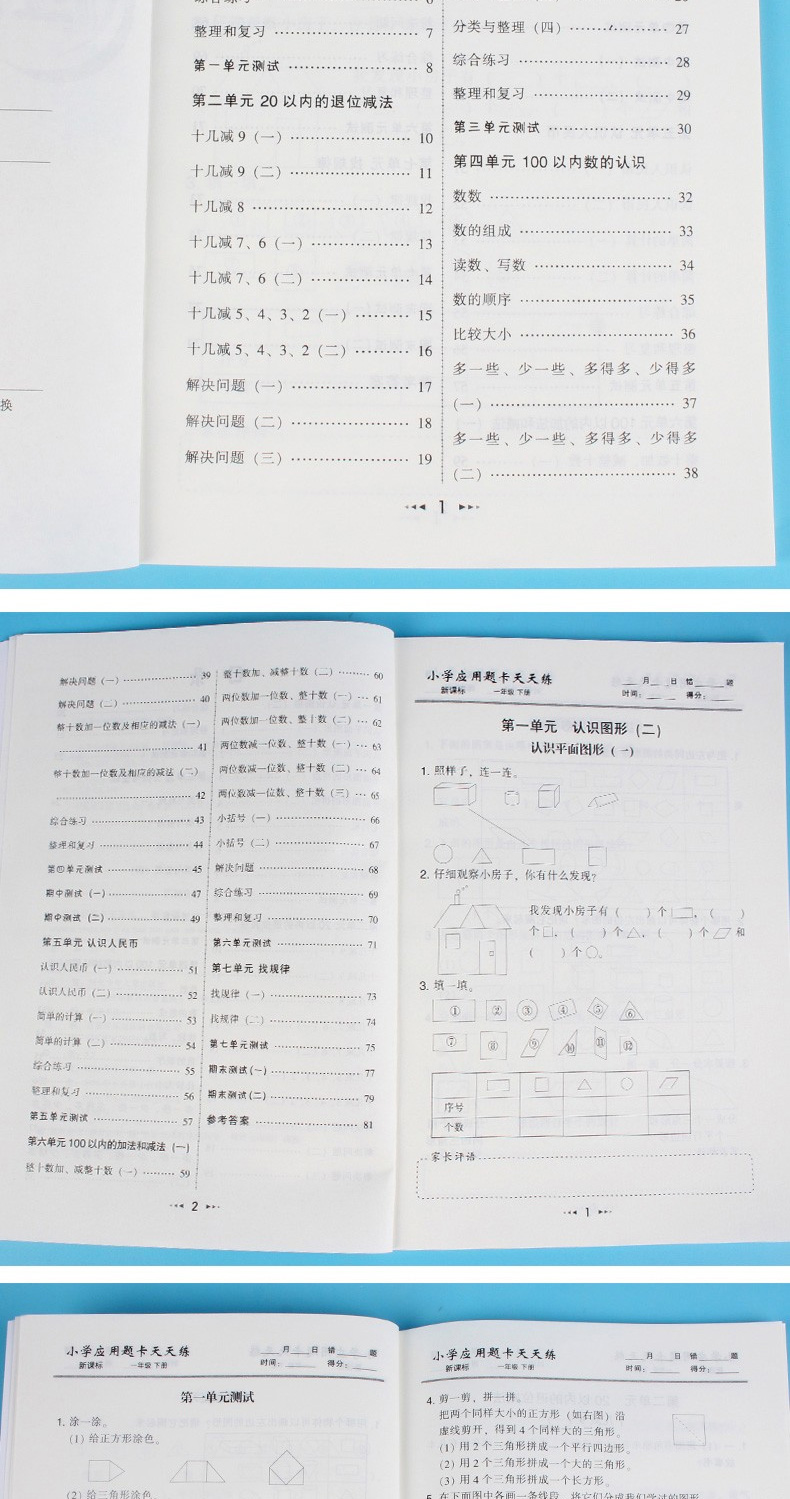 整理和复习 …… 7
第一单元测试 …… 8
第二单元 20 以内的退位减法
十几减 9（一）…… 10
十几减 9（二）…… 11
十几减 8 …… 12
十几减 7、6（一）…… 13
十几减 7、6（二）…… 14
十几减 5、4、3、2（一）…… 15
十几减 5、4、3、2（二）…… 16
解决问题（一）…… 17
解决问题（二）…… 18
解决问题（三）…… 19
分类与整理（四）…… 27
综合练习 …… 28
整理和复习 …… 29
第三单元测试 …… 30
第四单元 100 以内数的认识
数数 …… 32
数的组成 …… 33
读数、写数 …… 34
数的顺序 …… 35
比较大小 …… 36
多一些、少一些、多得多、少得多
（一）…… 37
多一些、少一些、多得多、少得多
（二）…… 38
1
换
解决问题（一）…… 39
解决问题（二）…… 40
整十数加一位数及相应的减法（一）
…… 41
整十数加一位数及相应的减法（二）
…… 42
综合练习 …… 43
整理和复习 …… 44
第四单元测试 …… 45
期中测试（一）…… 47
期中测试（二）…… 49
第五单元 认识人民币
认识人民币（一）…… 51
认识人民币（二）…… 52
简单的计算（一）…… 53
简单的计算（二）…… 54
综合练习 …… 55
整理和复习 …… 56
第五单元测试 …… 57
第六单元 100 以内的加法和减法（一）
整十数加、减整十数（一）…… 59
整十数加、减整十数（二）…… 60
两位数加一位数、整十数（一）…… 61
两位数加一位数、整十数（二）…… 62
两位数减一位数、整十数（一）…… 63
两位数减一位数、整十数（二）…… 64
两位数减一位数、整十数（三）…… 65
小括号（一）…… 66
小括号（二）…… 67
解决问题 …… 68
综合练习 …… 69
整理和复习 …… 70
第六单元测试 …… 71
第七单元 找规律
找规律（一）…… 73
找规律（二）…… 74
第七单元测试 …… 75
期末测试（一）…… 77
期末测试（二）…… 79
参考答案 …… 81
2
小学应用题卡天天练
新课标 一年级 下册
___月___日 错___题
时间：___ 得分：___
第一单元 认识图形（二）
认识平面图形（一）
1. 照样子，连一连。
2. 仔细观察小房子，你有什么发现？
我发现小房子有（ ）个 ，（ ）
个 ，（ ）个 ，（ ）个 和
（ ）个 。
3. 填一填。
① ② ③ ④ ⑤ ⑥
⑦ ⑧ ⑨ ⑩ ⑪ ⑫
序号
个数
家长评语
1
小学应用题卡天天练
新课标 一年级 下册
___月___日 错___题
时间：___ 得分：___
第一单元测试
1. 涂一涂。
（1）给正方形涂色。
（2）给三角形涂色。
小学应用题卡天天练
新课标 一年级 下册
___月___日 错___题
时间：___ 得分：___
4. 剪一剪，拼一拼。
把两个同样大小的正方形（如右图）沿
虚线剪开，得到 4 个同样大的三角形。
（1）用 2 个三角形拼成一个平行四边形。
（2）用 2 个三角形拼成一个大的三角形。
（3）用 4 个三角形拼成一个长方形。
5. 在下面图中各画一条线段，将它们分成我们学过的图形